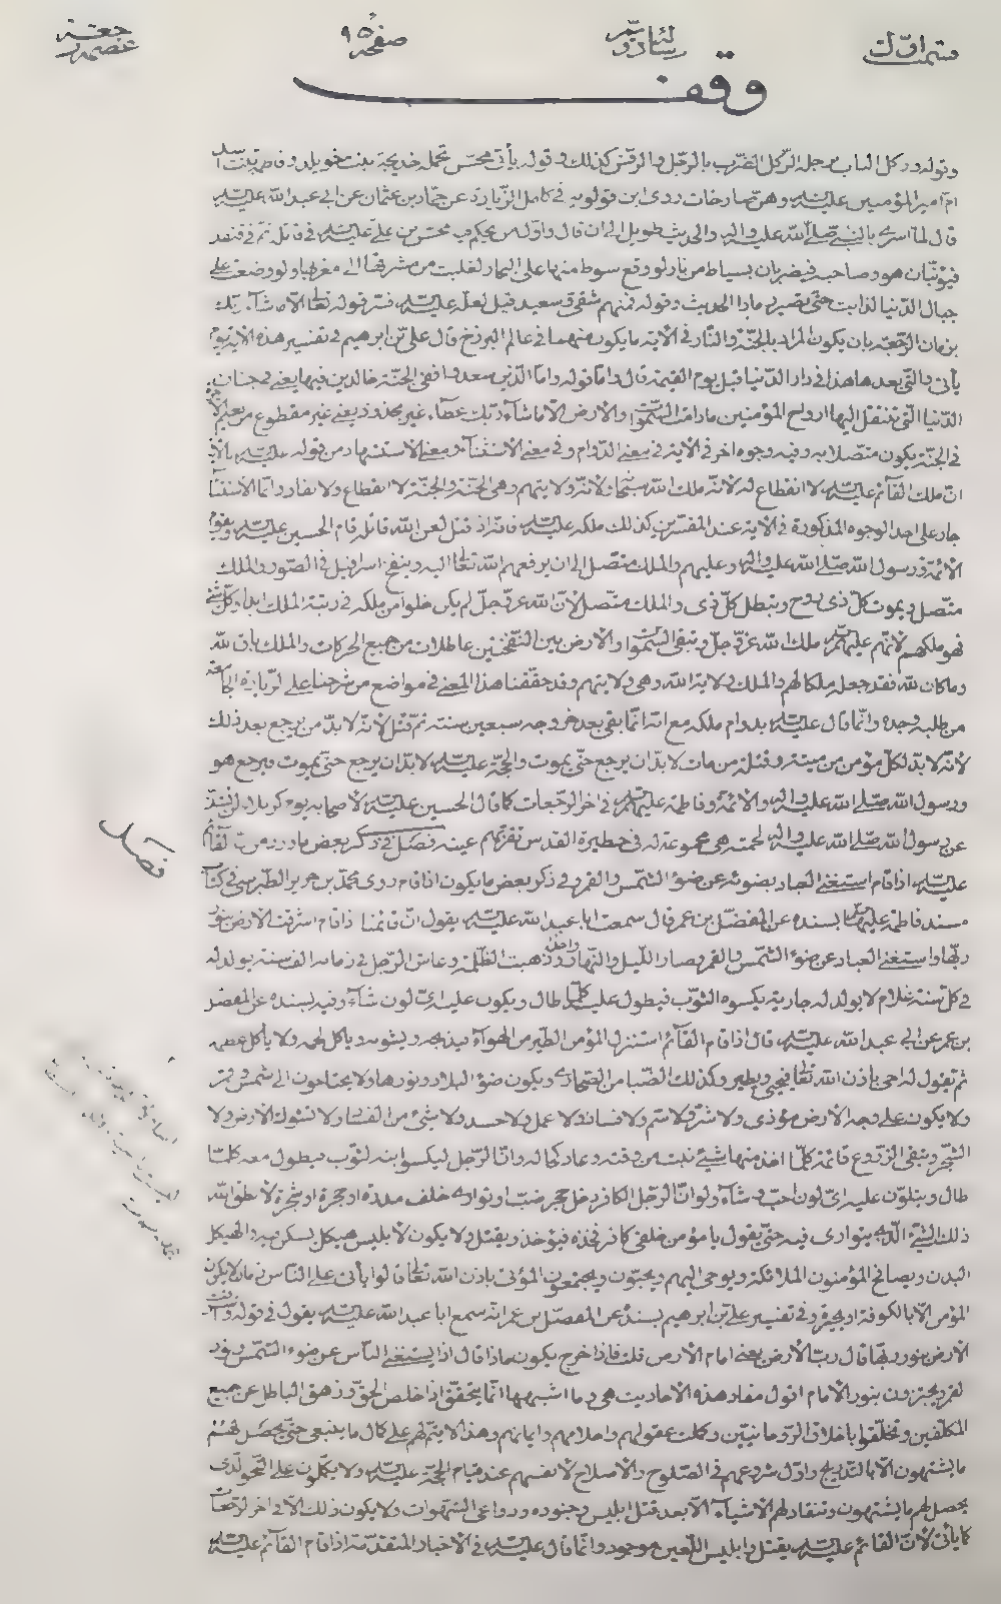 قسمت اول
صفحه ٩٥
وقف
وقوله وركل الباب برجله الركل الضرب بالرجل والرفس كذلك وقوله يأتى محسن تحمله خديجة بنت خويلد وفاطمة بنت اسد
ام امير المؤمنين عليه السلام وهن صارخات روى ابن قولويه فى كامل الزيارة عن حماد بن عثمان عن ابى عبد الله عليه السلام
قال لما اسرى بالنبى صلى الله عليه وآله والحديث طويل الى ان قال واول من يحكم فيه محسن بن على عليه السلام فى قاتله ثم فى قنفذ
فيؤتيان هو وصاحبه فيضربان بسياط من نار لو وقع سوط منها على البحار لغلبت من مشرقها الى مغربها ولو وضعت على
جبال الدنيا لذابت حتى تصير رمادا الحديث وقوله فمنهم شقى وسعيد
بزمان الرجعة بان يكون المراد بالجنة والنار فى الآية ما يكون منهما فى عالم البرزخ قال على بن ابرهيم فى تفسير هذه الآية يوم
يأتى والتى بعدها هذا فى دار الدنيا قبل يوم القيمة قال واما قوله واما الذين سعدوا ففى الجنة خالدين فيها يعنى فى جنان
الدنيا التى تنتقل اليها ارواح المؤمنين ما دامت السموات والارض الا ما شاء ربك عطاء غير مجذوذ يعنى غير مقطوع من نعيم الآخرة
فى الجنة يكون متصلا به وفيه وجوه اخر فى الآية فى معنى الدوام وفى معنى الاستثناء ومعنى الاستشهاد من قوله عليه السلام بالآية
ان ملك القائم عليه السلام لا انقطاع له لانه ملك الله سبحانه لانه ولايتهم وهى الجنة والجنة لا انقطاع ولا نفاد وانما الاستثناء
جار على احد الوجوه المذكورة فى الآية عند المفسرين كذلك ملكه عليه السلام فانه اذ قتل لعن الله قاتله قام الحسين عليه السلام ويقوم
الائمة ورسول الله صلى الله عليه وآله وعليهم والملك متصل الى ان يرفعهم الله تعالى اليه وينفخ اسرافيل فى الصور والملك
متصل ويموت كل ذى روح ويبطل كل ذى والملك متصل لان الله عز وجل لم يكن خلوا من ملكه فى رتبة الملك ابدا وكل شئ
فهو ملكهم لانهم عليهم السلام ملك الله عز وجل وتبقى السموات والارض بين النفختين عاطلات من جميع الحركات والملك باق لله
وما كان لله فقد جعله ملكا لهم والملك ولاية الله وهى ولايتهم وقد حققنا هذا المعنى فى مواضع من شرحنا على الزيارة الجامعة
من طلبه وجده وانما قال عليه السلام بدوام ملكه مع انه انما يبقى بعد خروجه سبعين سنة ثم قتل لانه لا بد من يرجع بعد ذلك
لانه لا بد لكل مؤمن من ميتة وقتلة من مات لا بد ان يرجع حتى يموت والحجة عليه السلام لا بد ان يرجع حتى يموت فيرجع هو
ورسول الله صلى الله عليه وآله والائمة وفاطمة عليهم السلام فى اخر الرجعات كما قال الحسين عليه السلام لاصحابه يوم كربلا لن تشذ
عن رسول الله صلى الله عليه وآله لحمته هى مجموعة له فى حظيرة القدس تقر بهم عينه فصل فى ذكر بعض ما ورد من ان القائم
عليه السلام اذا قام استغنى العباد بضوئه عن ضوء الشمس والقمر وفى ذكر بعض ما يكون اذا قام روى محمد بن جرير الطبرسى فى كتاب
مسند فاطمة عليها السلام بسنده عن المفضل بن عمر قال سمعت ابا عبد الله عليه السلام يقول ان قائمنا اذا قام اشرقت الارض بنور
ربها واستغنى العباد عن ضوء الشمس والقمر وصار الليل والنهار واحدا وذهبت الظلمة وعاش الرجل فى زمانه الف سنة يولد له
فى كل سنة غلام لا يولد له جارية يكسوه الثوب فيطول عليه كلما طال ويكون عليه اى لون شاء وفيه بسنده عن المفضل
بن عمر عن ابى عبد الله عليه السلام قال اذا قام القائم استنزل المؤمن الطير من الهواء فيذبحه ويشويه ويأكل لحمه ولا يأكل عظمه
ثم يقول له احى باذن الله تعالى فيحيى ويطير وكذلك الضبا من الصحارى ويكون ضوء البلاد ونورها ولا يحتاجون الى شمس وقمر
ولا يكون على وجه الارض مؤذى ولا شر ولا سم ولا فساد
الشجر وتبقى الزروع قائمة كلما اخذ منها شئ نبت من وقته وعاد كحاله وان الرجل ليكسوا ابنه لثوب فيطول معه كلما
طال ويتلون عليه اى لون احب وشاء ولو ان الرجل الكافر دخل جحر ضب او توارى خلف مدرة او حجرة او شجرة لانطق الله
ذلك الشئ الذى يتوارى فيه حتى يقول يا مؤمن خلفى كافر فخذه فيؤخذ ويقتل ولا يكون لابليس هيكل يسكن فيه والهيكل
البدن ويصافح المؤمنون الملائكة ويوحى اليهم ويحيون ويجتمعون الموتى باذن الله تعالى قالوا يأتى على الناس زمان لا يكون
المؤمن الا بالكوفة او يحن وفى تفسير على بن ابرهيم بسنده عن المفضل بن عمر انه سمع ابا عبد الله عليه السلام يقول فى قوله واشرقت
الارض بنور ربها قال رب الارض يعنى امام الارض قلت فاذا خرج يكون ماذا قال اذا يستغنى الناس عن ضوء الشمس ونور
القمر ويجتزون بنور الامام اقول مفاد هذه الاحاديث هى وما اشبهها انما يتحقق اذا خلص الحق وزهق الباطل عن جميع
المكلفين وتخلقوا باخلاق الروحانيين وكملت عقولهم واحلامهم وايمانهم وهذا لا يتم لهم على كمال ما ينبغى حتى يحصل لهم
ما يشتهون الا بالتدريج واول شروعهم فى الصلوح والاصلاح لانفسهم عند قيام الحجة عليه السلام ولا يكملون على النحو الذى
يحصل لهم ما يشتهون وتنقاد لهم الاشياء الا بعد قتل ابليس وجنوده ودواعى الشهوات ولا يكون ذلك الا فى اخر الرجعات
كما يأتى لان القائم عليه السلام يقتل وابليس اللعين موجود وانما قال عليه السلام فى الاخبار المتقدمة اذا قام القائم عليه السلام
فصل